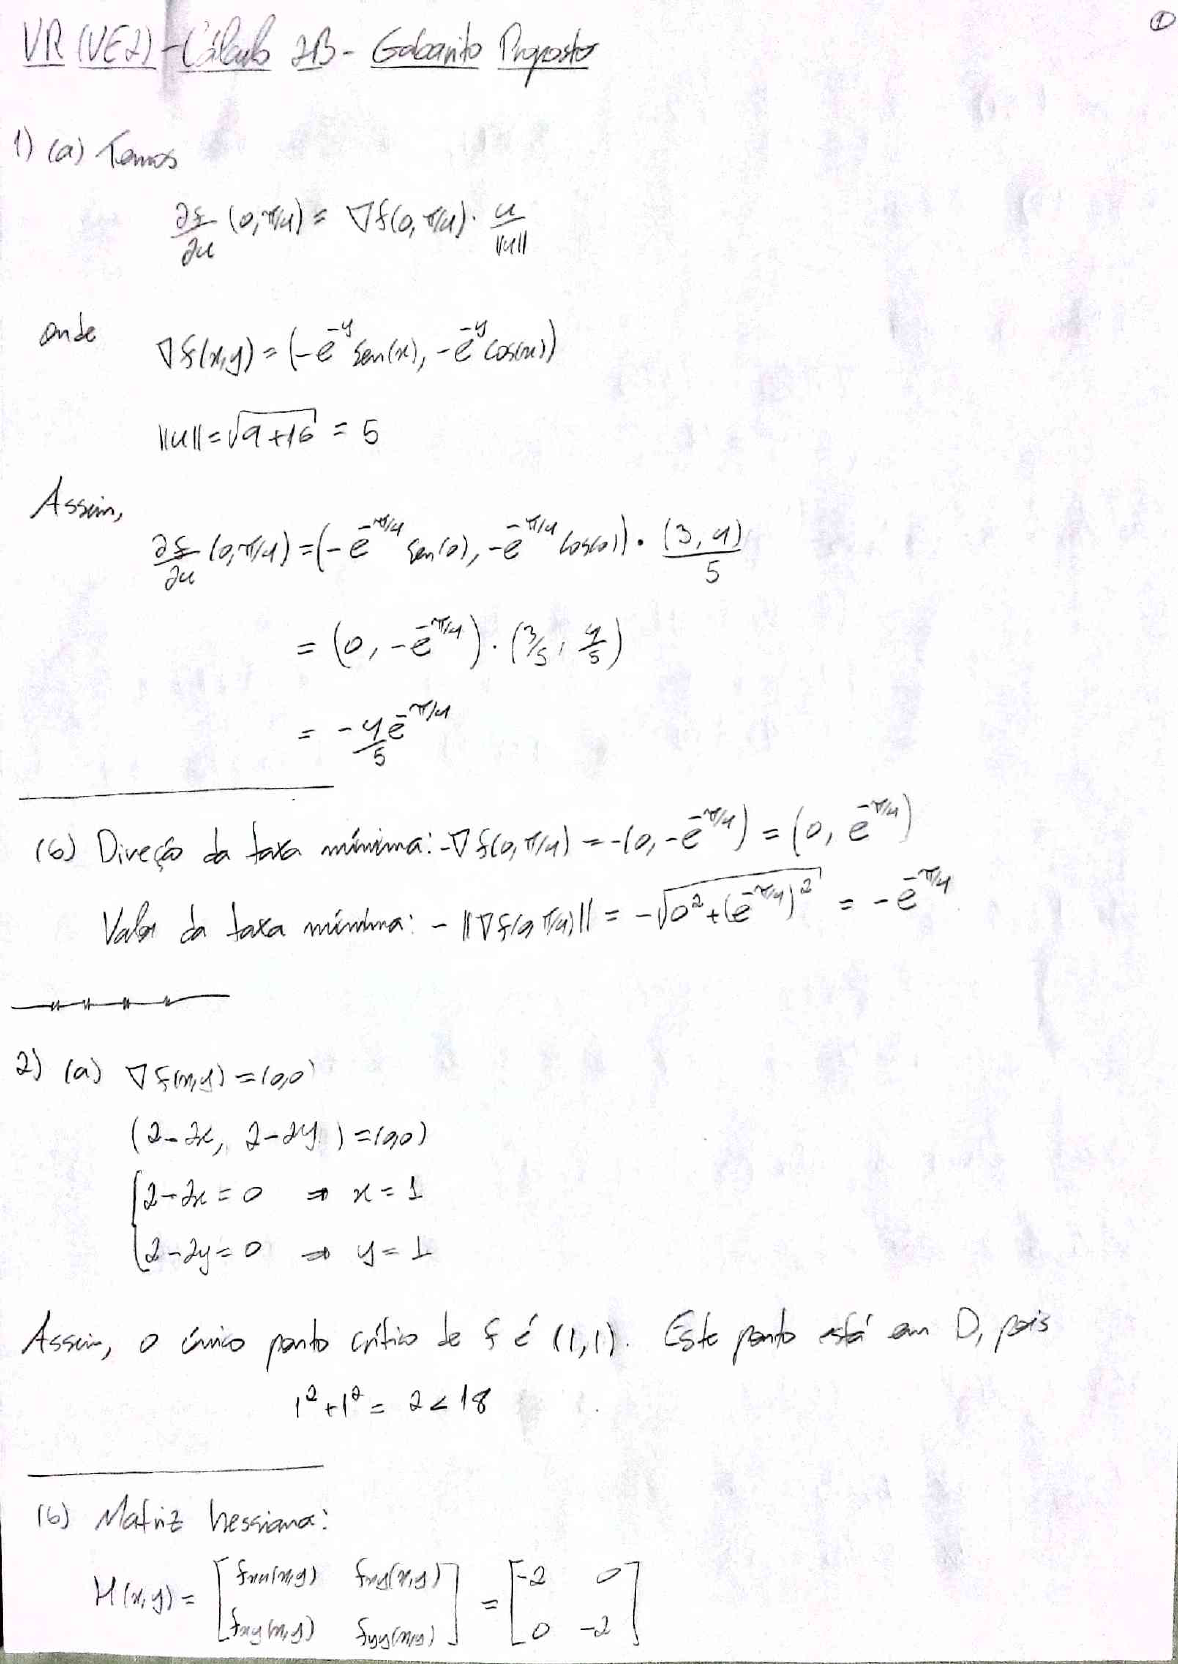 ①
VR (VE2) - Cálculo 2B - Gabarito Proposto
1) (a) Temos
∂f/∂u (0,π/4) = ∇f(0,π/4) · u/||u||
onde
∇f(x,y) = (-e^{-y} sen(x), -e^{-y} cos(x))
||u|| = √(9+16) = 5
Assim,
∂f/∂u (0,π/4) = (-e^{-π/4} sen(0), -e^{-π/4} cos(0)) · (3,4)/5
= (0, -e^{-π/4}) · (3/5, 4/5)
= -4/5 e^{-π/4}
(b) Direção da taxa mínima: -∇f(0,π/4) = -(0, -e^{-π/4}) = (0, e^{-π/4})
Valor da taxa mínima: -||∇f(0,π/4)|| = -√(0² + (e^{-π/4})²) = -e^{-π/4}
2) (a) ∇f(x,y) = (0,0)
(2-2x, 2-2y) = (0,0)
{ 2-2x = 0 ⇒ x = 1
2-2y = 0 ⇒ y = 1
Assim, o único ponto crítico de f é (1,1). Este ponto está em D, pois
1² + 1² = 2 < 18
(b) Matriz hessiana:
H(x,y) = [ fxx(x,y) fxy(x,y) ] = [ -2 0 ]
[ fxy(x,y) fyy(x,y) ] [ 0 -2 ]